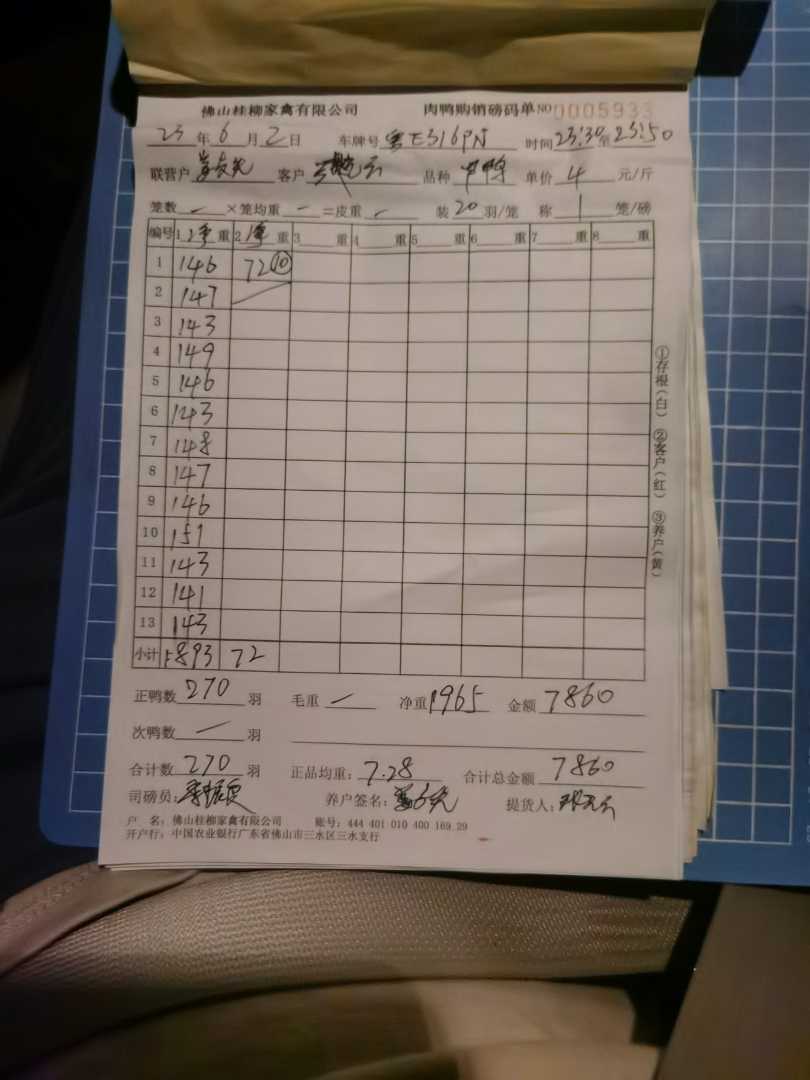 佛山桂柳家禽有限公司 肉鸭购销磅码单 NO 0005933
23年6月2日 车牌号 粤E316PN 时间 23:30至23:50
联营户 客户 品种 中鸭 单价 4 元/斤
笼数 — ×笼均重 — =皮重 — 装20羽/笼 称 1 笼/磅
编号 1 重 2 重 3 重 4 重 5 重 6 重 7 重 8 重
1 146 72⑩
2 147
3 143
4 149
5 146
6 143
7 148
8 147
9 146
10 151
11 143
12 141
13 143
小计 1893 72
正鸭数 270 羽 毛重 — 净重 1965 金额 7860
次鸭数 — 羽
合计数 270 羽 正品均重: 7.28 合计总金额 7860
司磅员: 养户签名: 提货人:
户 名: 佛山桂柳家禽有限公司 账号: 444 401 010 400 169 29
开户行: 中国农业银行广东省佛山市三水区三水支行
①存根(白) ②客户(红) ③养户(黄)